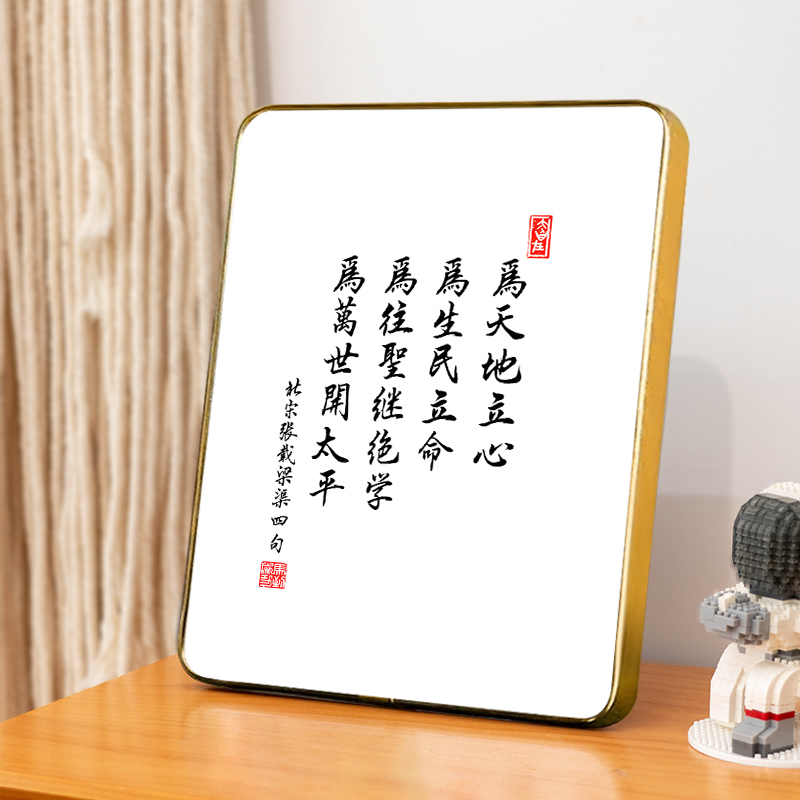 爲天地立心
爲生民立命
爲往聖继绝学
爲萬世開太平
北宋張載梁渠四句